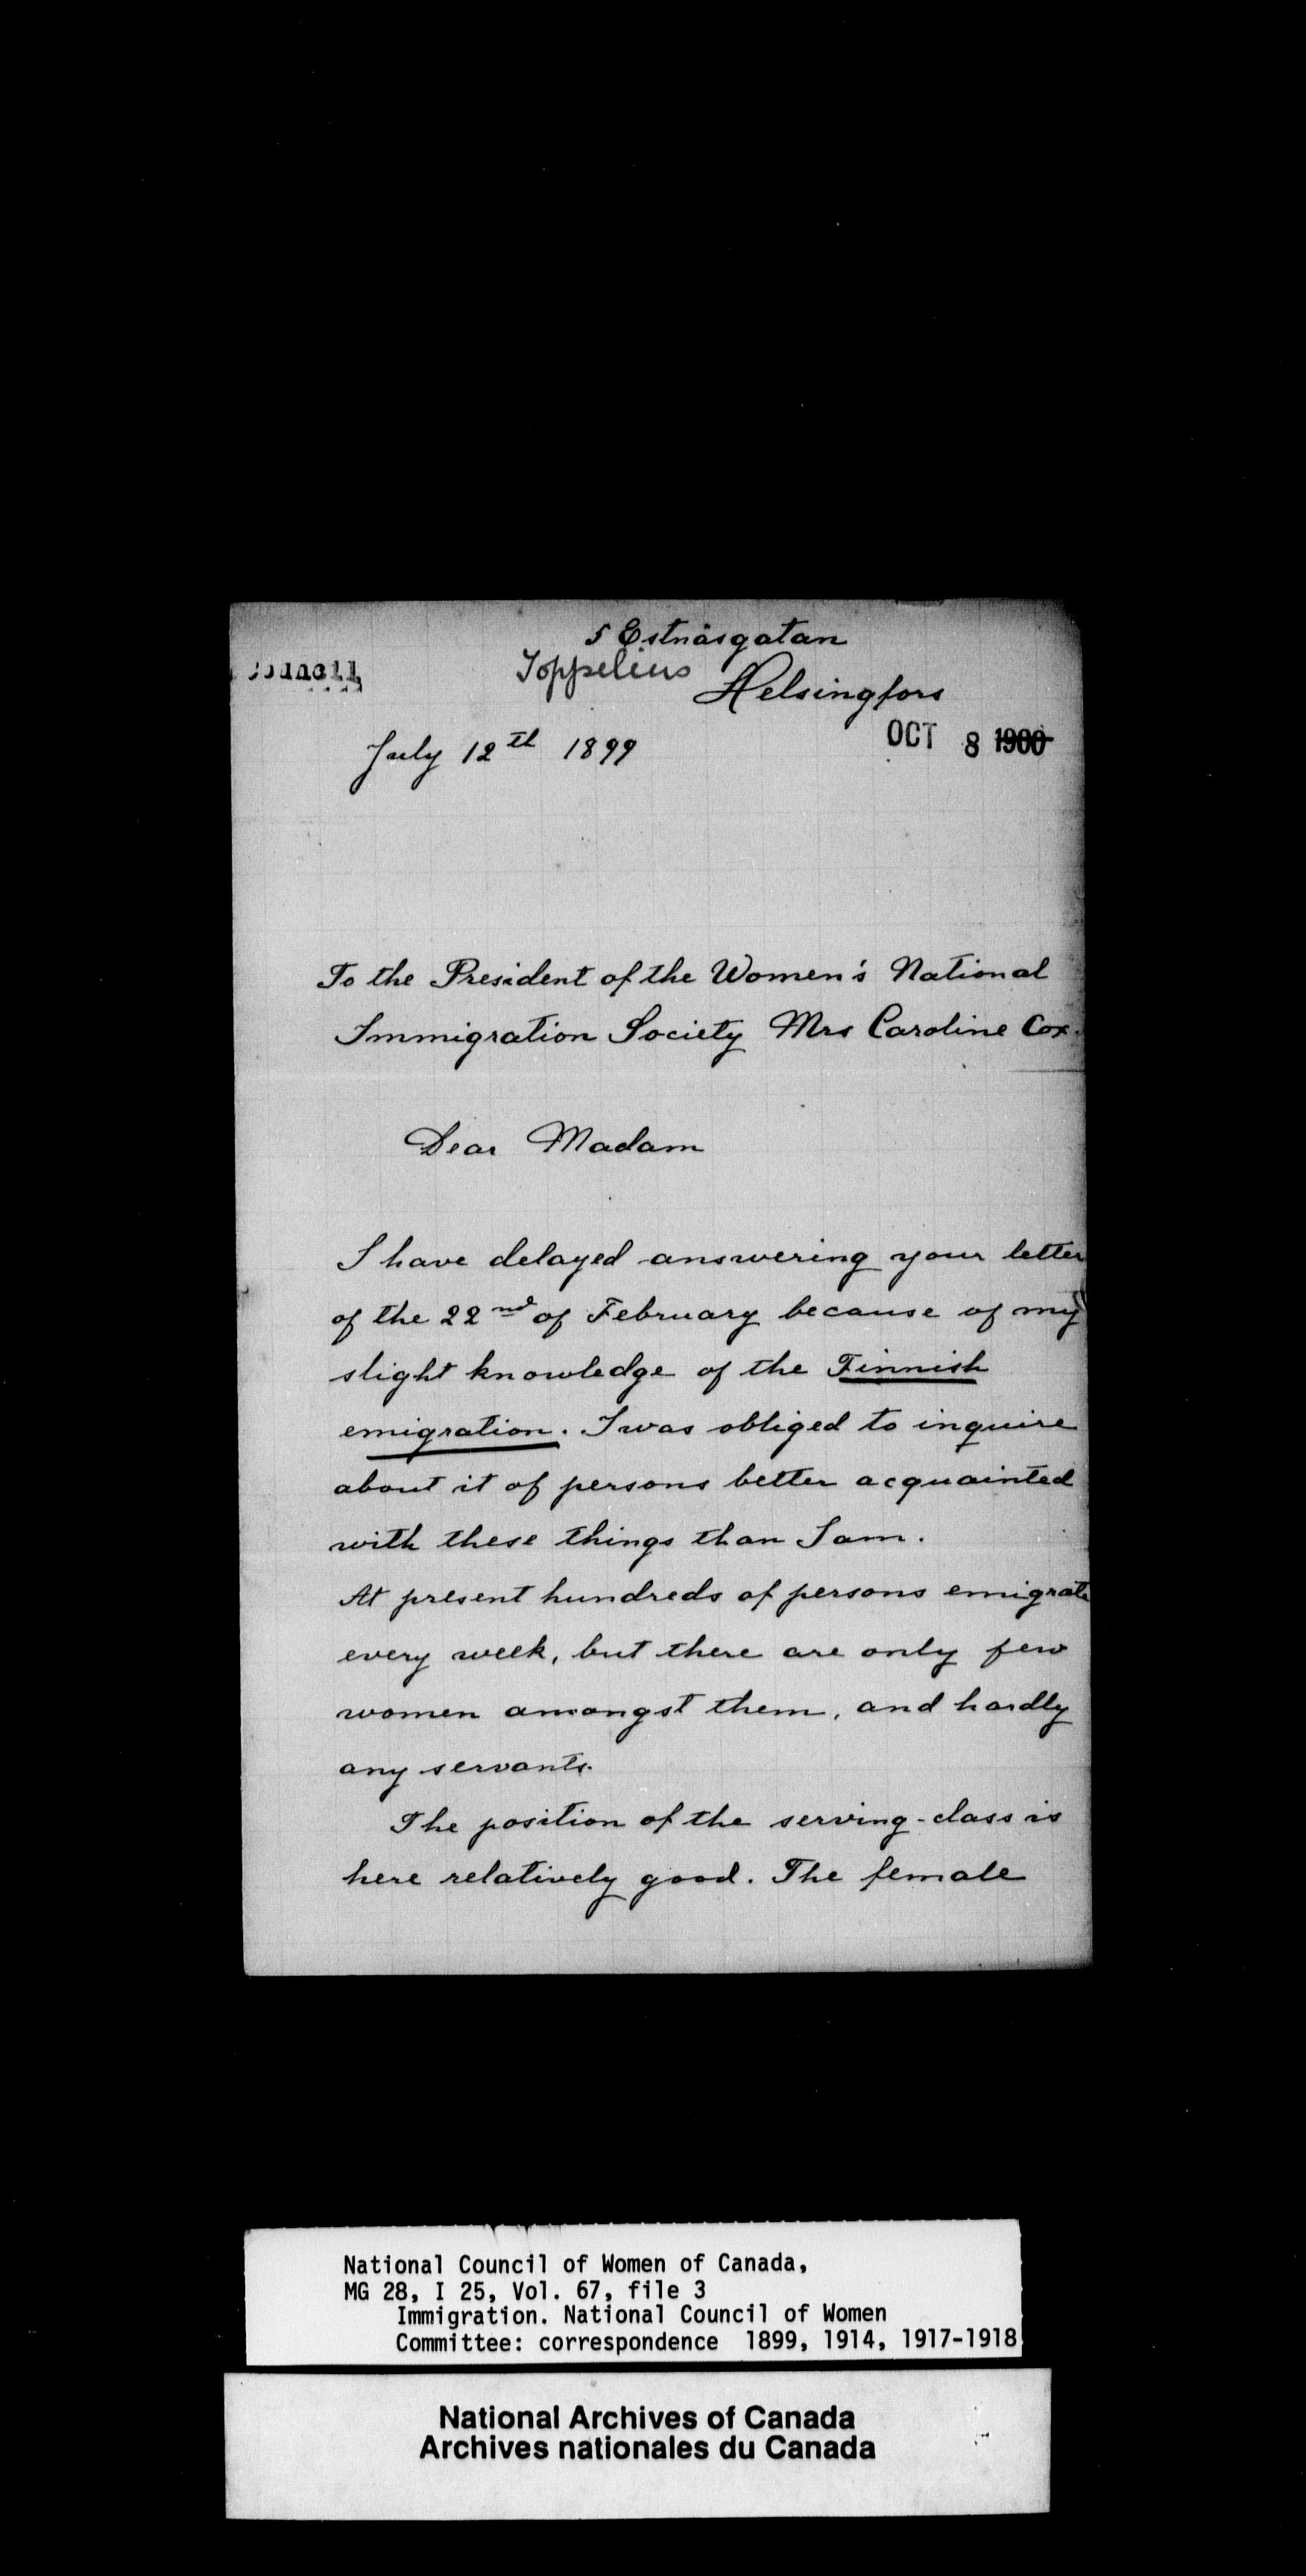 5 Estnäsgatan
Council
Toppelius
Helsingfors
OCT 8 1900
July 12th 1899
To the President of the Women's National
Immigration Society Mrs Caroline Cox.
Dear Madam
I have delayed answering your letter
of the 22nd of February because of my
slight knowledge of the Finnish
emigration. I was obliged to inquire
about it of persons better acquainted
with these things than I am.
At present hundreds of persons emigrate
every week, but there are only few
women amongst them, and hardly
any servants.
The position of the serving-class is
here relatively good. The female
National Council of Women of Canada,
MG 28, I 25, Vol. 67, file 3
Immigration. National Council of Women
Committee: correspondence 1899, 1914, 1917-1918
National Archives of Canada
Archives nationales du Canada